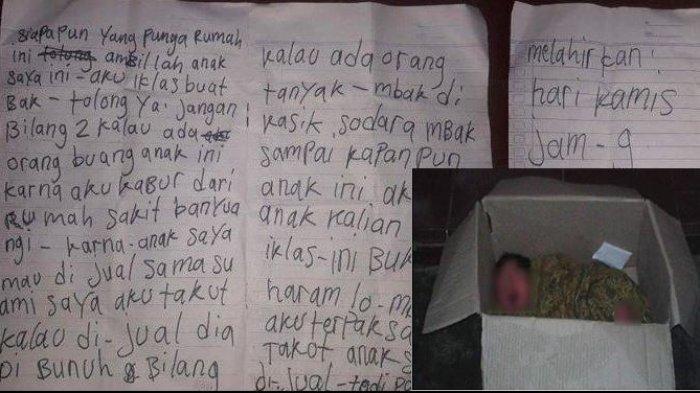 siapa pun yang punga rumah
ini ambillah anak
saya ini - aku iklas buat
Bak - tolong ya. jangan
Bilang 2 kalau ada
orang buang anak ini
karna aku kabur dari
rumah sakit banyua
ngi - karna - anak saya
mau di jual sama su
ami saya aku takut
kalau di - jual dia
Di Bunuh Bilang
kalau ada orang
tanyak - mbak di
kasik sodara mbak
sampai kapan pun
anak ini ak
anak kalian
iklas - ini Buk
haram lo - m
aku terpaksa
Takot anak s
di - jual - tadi pa
melahirkan :
hari kamis
jam - 9